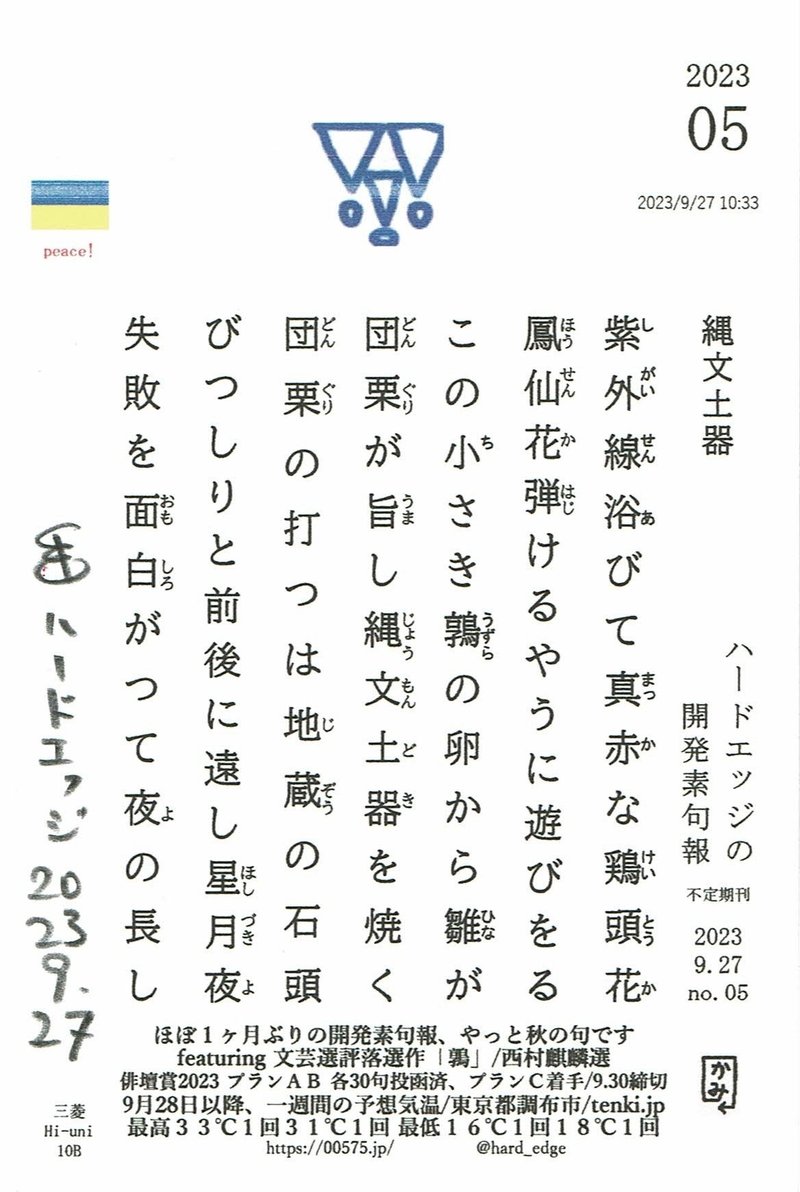 2023
05
2023/9/27 10:33
peace!
縄文土器
ハードエッジの
開発素句報
不定期刊
2023
9.27
no. 05
紫外線浴びて真赤な鶏頭花
し がい せん あ まっ か けい とう か
鳳仙花弾けるやうに遊びをる
ほう せん か はじ
この小さき鶉の卵から雛が
ち うずら ひな
団栗が旨し縄文土器を焼く
どん ぐり うま じょう もん ど き
団栗の打つは地蔵の石頭
どん ぐり じ ぞう
びつしりと前後に遠し星月夜
ほし づき よ
失敗を面白がつて夜の長し
おも しろ よ
ハードエッジ
20
23
9.
27
ほぼ1ヶ月ぶりの開発素句報、やっと秋の句です
featuring 文芸選評落選作「鶉」/西村麒麟選
俳壇賞2023 プランＡＢ 各30句投函済、プランＣ着手/9.30締切
9月28日以降、一週間の予想気温/東京都調布市/tenki.jp
最高３３℃１回３１℃１回 最低１６℃１回１８℃１回
https://00575.jp/ @hard_edge
三菱
Hi-uni
10B
かみ